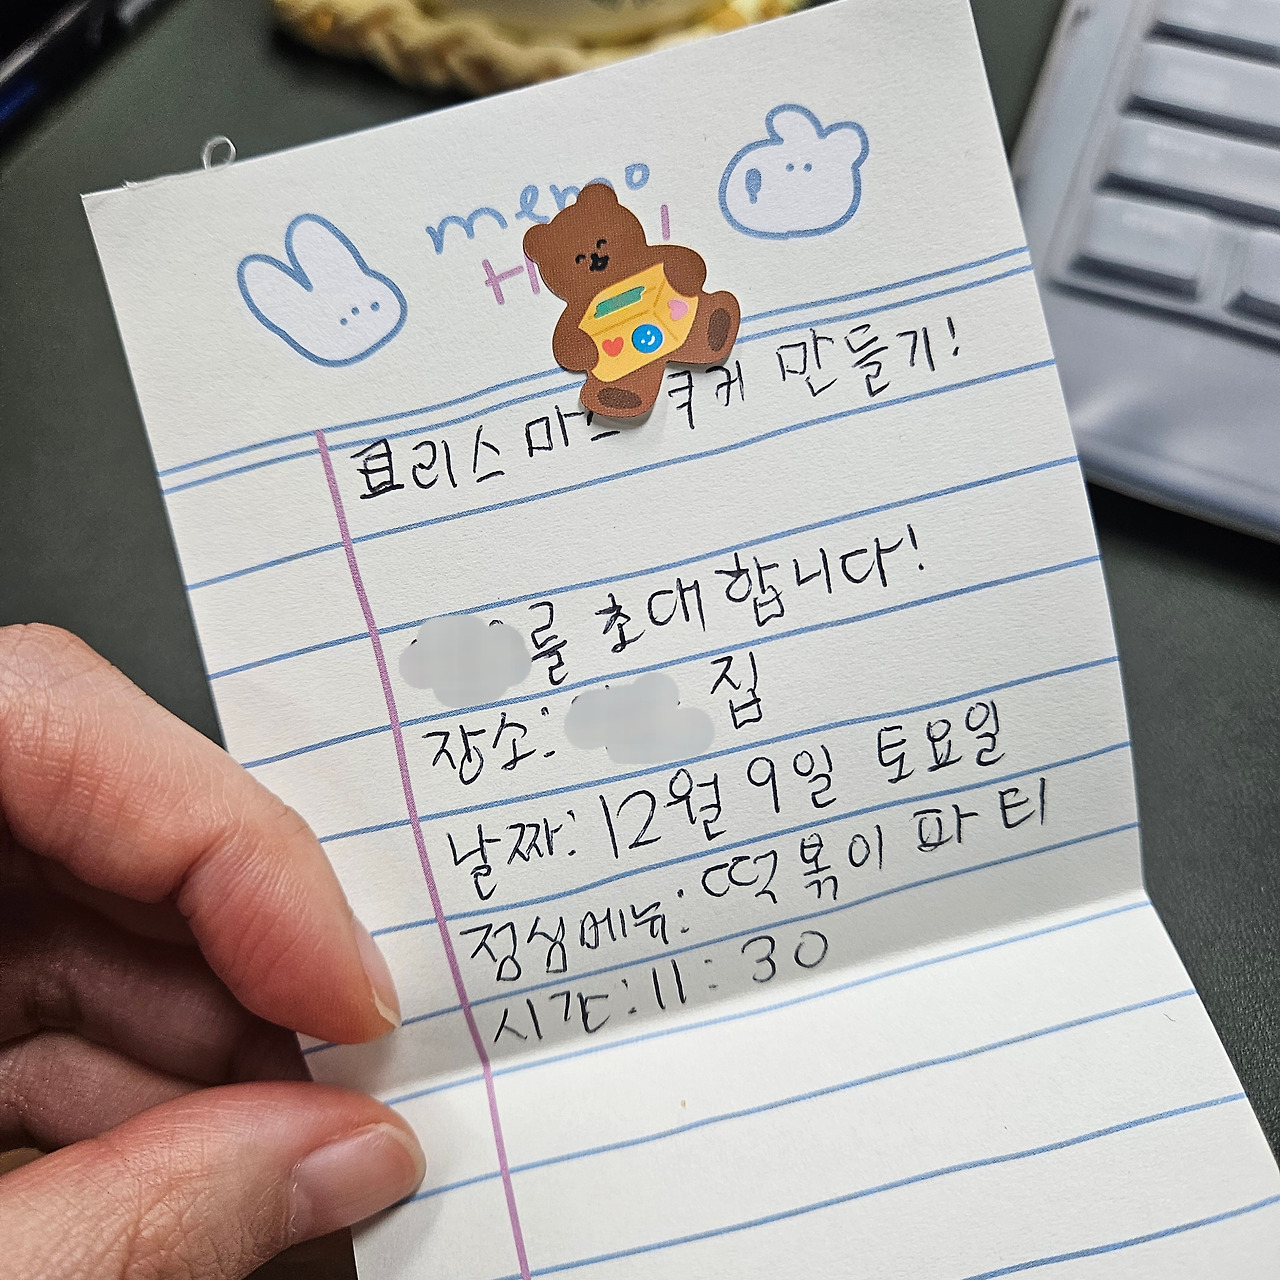 memo
크리스마스 쿠키 만들기!
를 초대합니다!
장소: 집
날짜: 12월 9일 토요일
점심메뉴: 떡볶이 파티
시간: 11:30